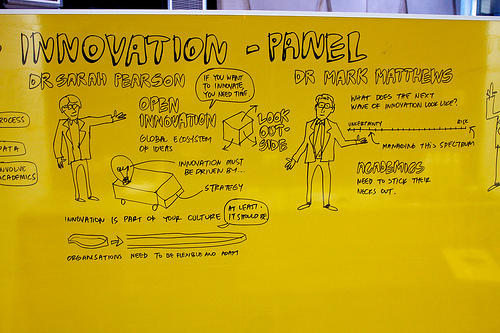 - INNOVATION - PANEL
DR SARAH PEARSON
IF YOU WANT
TO INNOVATE,
YOU NEED TIME.
DR MARK MATTHEWS
OPEN
INNOVATION
GLOBAL ECOSYSTEM
OF IDEAS
LOOK
OUT-
SIDE
WHAT DOES THE NEXT
WAVE OF INNOVATION LOOK LIKE?
UNCERTAINTY
RISK
MANAGING THIS SPECTRUM
ACADEMICS
NEED TO STICK THEIR
NECKS OUT.
ROCESS
DATA
INVOLVE
ACADEMICS
INNOVATION MUST
BE DRIVEN BY...
STRATEGY
INNOVATION IS PART OF YOUR CULTURE
AT LEAST,
IT SHOULD BE
ORGANISATIONS NEED TO BE FLEXIBLE AND ADAPT